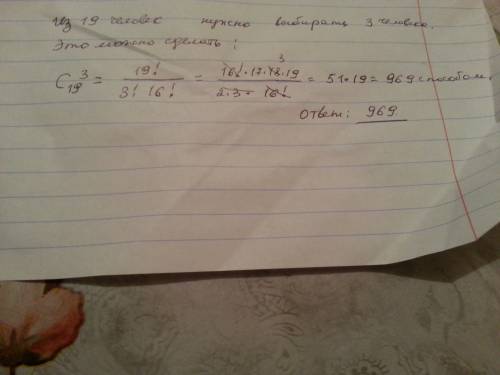 Из 19 человек нужно выбирать 3 человека.
Это можно сделать:
C₁₉³ = 19! / 3! 16! = 16! · 17 · 18 · 19 / 2 · 3 · 16! = 51 · 19 = 969 способами
3
Ответ: 969.